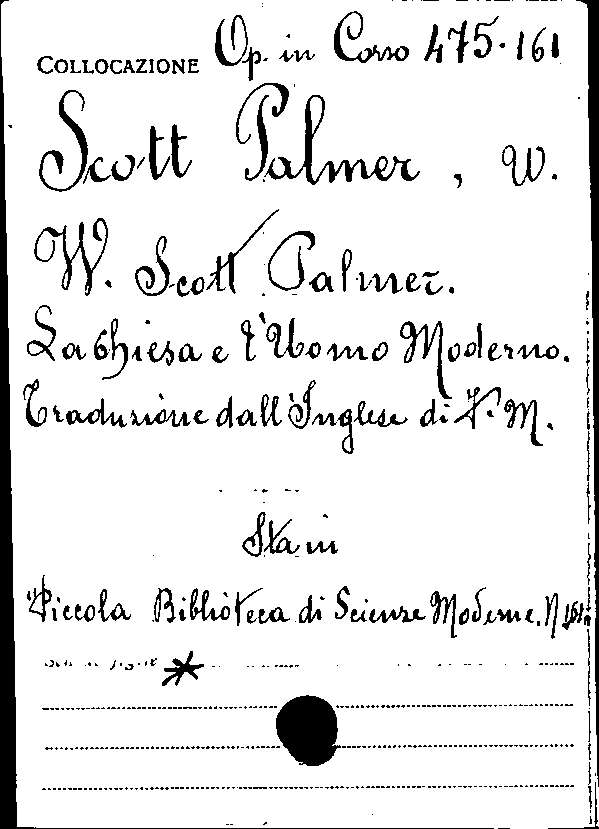 COLLOCAZIONE Op. in Corso 475.161
Scott Palmer, W.
W. Scott Palmer.
La Chiesa e l'Uomo Moderno.
Traduzione dall'Inglese di V. M.
Sta in
"Piccola Biblioteca di Scienze Moderne. N 161.
*